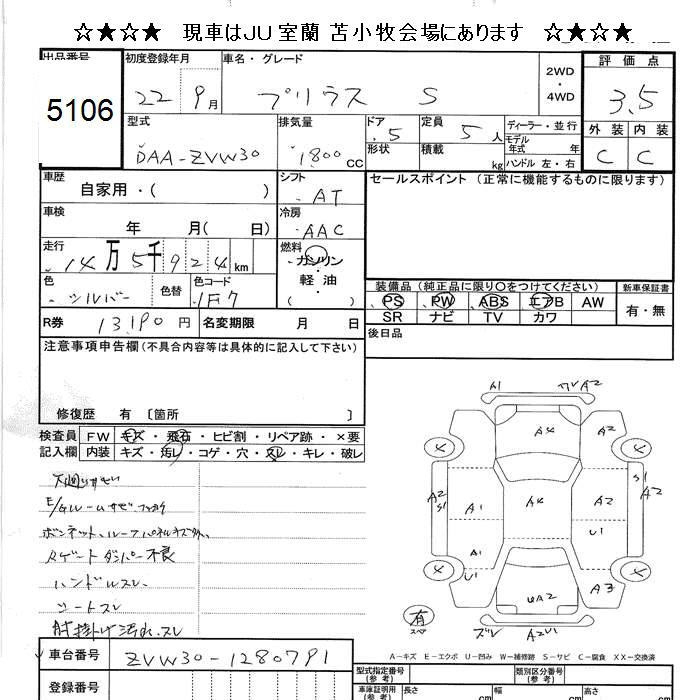 ☆★☆★ 現車はJU室蘭 苫小牧会場にあります ☆★☆★
出品番号
5106
初度登録年月
22 9月
車名・グレード
プリウス S
2WD・4WD
評価点
3.5
外装 内装
C C
型式
DAA-ZVW30
排気量
1800 CC
ドア 5
形状
定員 5人
積載 kg
ディーラー・並行
モデル年式 年
ハンドル 左・右
車歴
自家用・( )
シフト
AT
セールスポイント (正常に機能するものに限ります)
車検
年 月( 日)
冷房
AAC
走行
14万5千924km
燃料
ガソリン・軽油
( )
色
シルバー
色替
色コード
1F7
装備品 (純正品に限り○をつけてください)
PS PW ABS エアB AW
SR ナビ TV カワ
新車保証書
有・無
R券 13,190円
名変期限 月 日
後日品
注意事項申告欄(不具合内容等は具体的に記入して下さい)
修復歴 有〔箇所 〕
検査員記入欄
FW キズ・飛石・ヒビ割・リペア跡・×要
内装 キズ・汚レ・コゲ・穴・スレ・キレ・破レ
下廻りサビ
E/gルームサビ
ボンネット、ルーフパネルキズ多
Rゲートダンパー不良
ハンドルスレ
シートスレ
肘掛け汚れ、スレ
A1 A2
A4 A2
4 4
A2 S1 A1 A4 A2 S1 A2
U1
A1
4 U1 4
UA2 A3
有
スペア
ズレ A2U1
A-キズ E-エクボ U-凹み W-補修跡 S-サビ C-腐食 XX-交換済
車台番号
ZVW30-1280791
登録番号
型式指定番号(参考)
類別区分番号(参考)
車庫証明用(参考)
長さ cm
幅 cm
高さ cm